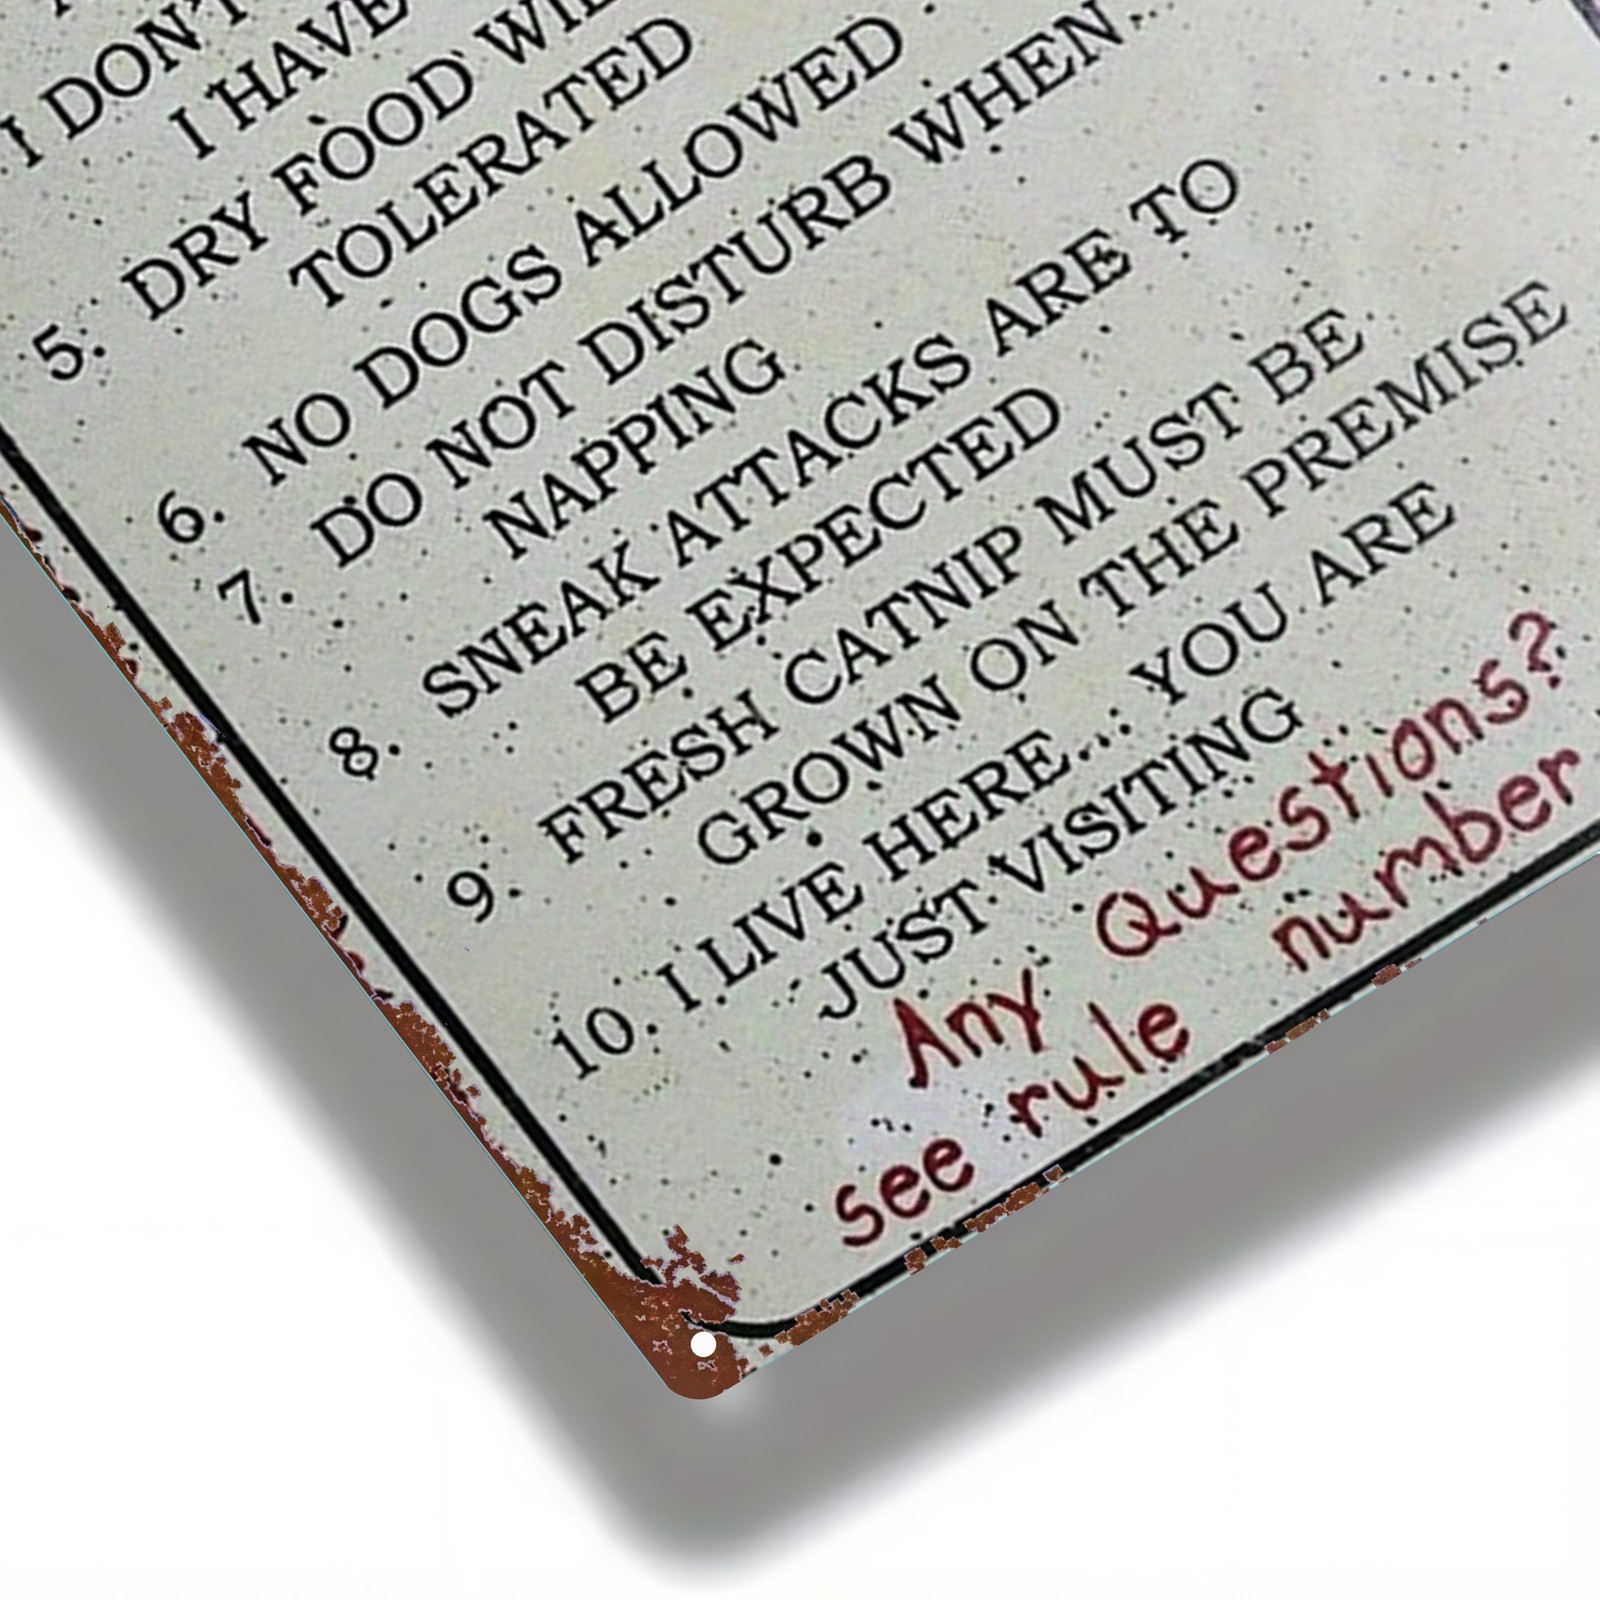 I DON'T
I HAVE
5. DRY FOOD
TOLERATED
6. NO DOGS ALLOWED
7. DO NOT DISTURB WHEN...
NAPPING
8. SNEAK ATTACKS ARE TO
BE EXPECTED
9. FRESH CATNIP MUST BE
GROWN ON THE PREMISE
10. I LIVE HERE... YOU ARE
JUST VISITING
Any Questions?
see rule number